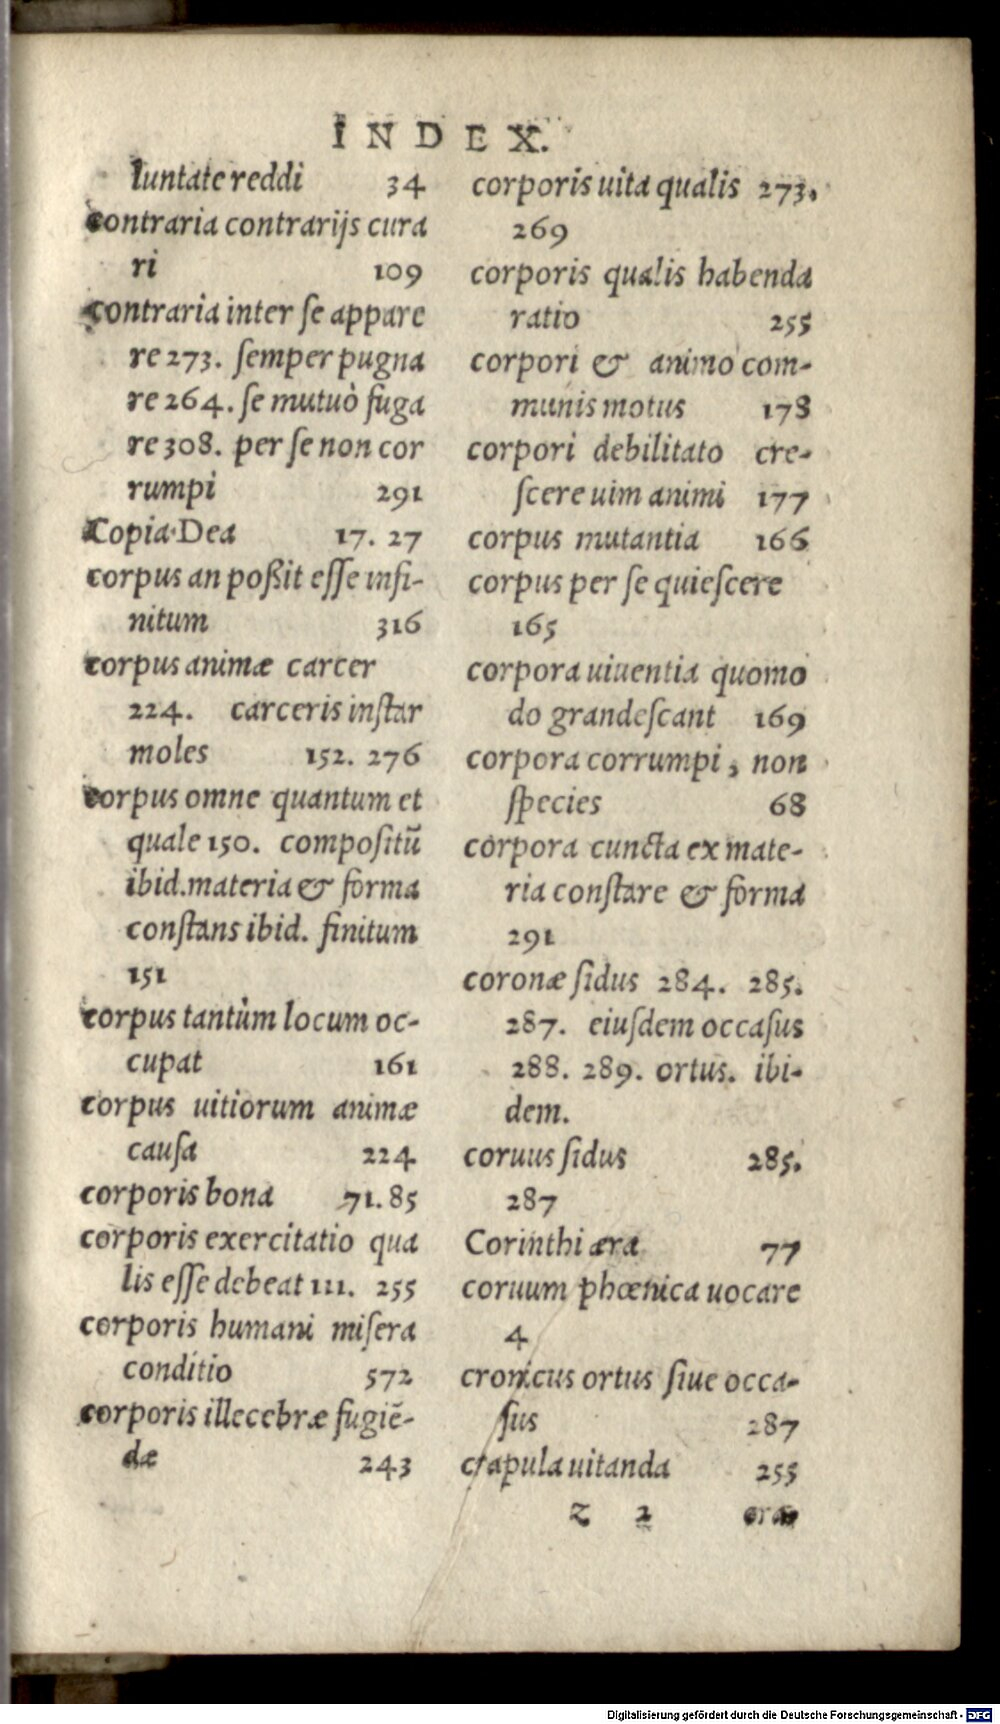 INDEX.
luntate reddi 34
contraria contrarijs cura
ri 109
contraria inter ſe appare
re 273. ſemper pugna
re 264. ſe mutuò fuga
re 308. per ſe non cor
rumpi 291
Copia Dea 17. 27
corpus an poßit eſſe infi-
nitum 316
corpus animæ carcer
224. carceris inſtar
moles 152. 276
corpus omne quantum et
quale 150. compoſitū
ibid. materia & forma
conſtans ibid. finitum
151
corpus tantùm locum oc-
cupat 161
corpus uitiorum animæ
cauſa 224
corporis bona 71. 85
corporis exercitatio qua
lis eſſe debeat 111. 255
corporis humani miſera
conditio 572
corporis illecebræ fugiē-
dæ 243
corporis uita qualis 273.
269
corporis qualis habenda
ratio 255
corpori & animo com-
munis motus 178
corpori debilitato cre-
ſcere uim animi 177
corpus mutantia 166
corpus per ſe quieſcere
165
corpora uiuentia quomo
do grandeſcant 169
corpora corrumpi, non
ſpecies 68
corpora cuncta ex mate-
ria conſtare & forma
291
coronæ ſidus 284. 285.
287. eiuſdem occaſus
288. 289. ortus. ibi-
dem.
coruus ſidus 285.
287
Corinthi æra 77
coruum phœnica uocare
4
cronicus ortus ſiue occa-
ſus 287
crapula uitanda 255
z 2 cra-
Digitalisierung gefördert durch die Deutsche Forschungsgemeinschaft - DFG